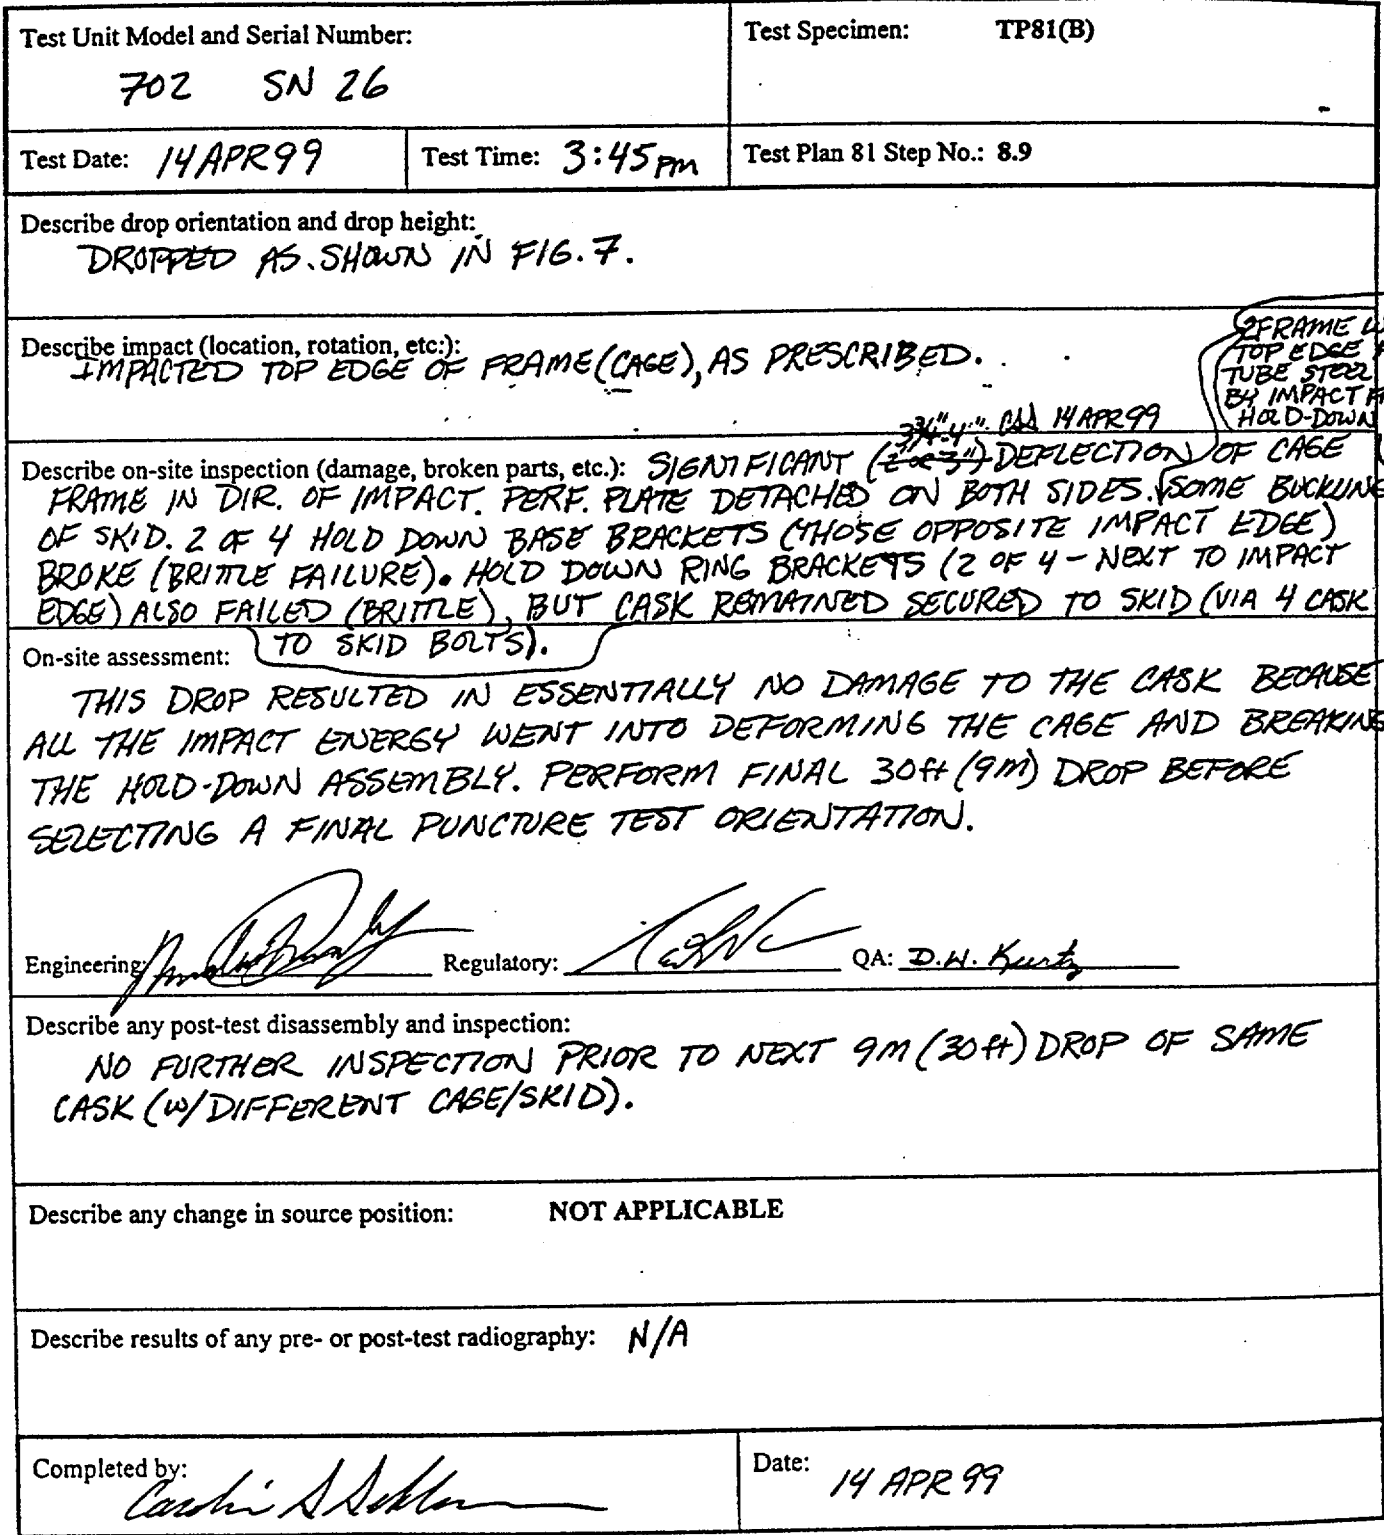 Test Unit Model and Serial Number:
702 SN 26
Test Specimen: TP81(B)
Test Date: 14 APR 99
Test Time: 3:45 pm
Test Plan 81 Step No.: 8.9
Describe drop orientation and drop height:
DROPPED AS SHOWN IN FIG. 7.
Describe impact (location, rotation, etc.):
IMPACTED TOP EDGE OF FRAME (CAGE), AS PRESCRIBED.
FRAME
TOP EDGE
TUBE STEEL
BY IMPACT
HOLD-DOWN
14 APR 99
Describe on-site inspection (damage, broken parts, etc.): SIGNIFICANT (2" or 3") DEFLECTION OF CAGE
FRAME IN DIR. OF IMPACT. PERF. PLATE DETACHED ON BOTH SIDES. SOME BUCKLING
OF SKID. 2 OF 4 HOLD DOWN BASE BRACKETS (THOSE OPPOSITE IMPACT EDGE)
BROKE (BRITTLE FAILURE). HOLD DOWN RING BRACKETS (2 OF 4 - NEXT TO IMPACT
EDGE) ALSO FAILED (BRITTLE), BUT CASK REMAINED SECURED TO SKID (VIA 4 CASK
TO SKID BOLTS).
On-site assessment:
THIS DROP RESULTED IN ESSENTIALLY NO DAMAGE TO THE CASK BECAUSE
ALL THE IMPACT ENERGY WENT INTO DEFORMING THE CAGE AND BREAKING
THE HOLD-DOWN ASSEMBLY. PERFORM FINAL 30ft (9M) DROP BEFORE
SELECTING A FINAL PUNCTURE TEST ORIENTATION.
Engineering:
Regulatory:
QA: D.W. Kurtz
Describe any post-test disassembly and inspection:
NO FURTHER INSPECTION PRIOR TO NEXT 9M (30 ft) DROP OF SAME
CASK (W/DIFFERENT CAGE/SKID).
Describe any change in source position: NOT APPLICABLE
Describe results of any pre- or post-test radiography: N/A
Completed by:
Date: 14 APR 99